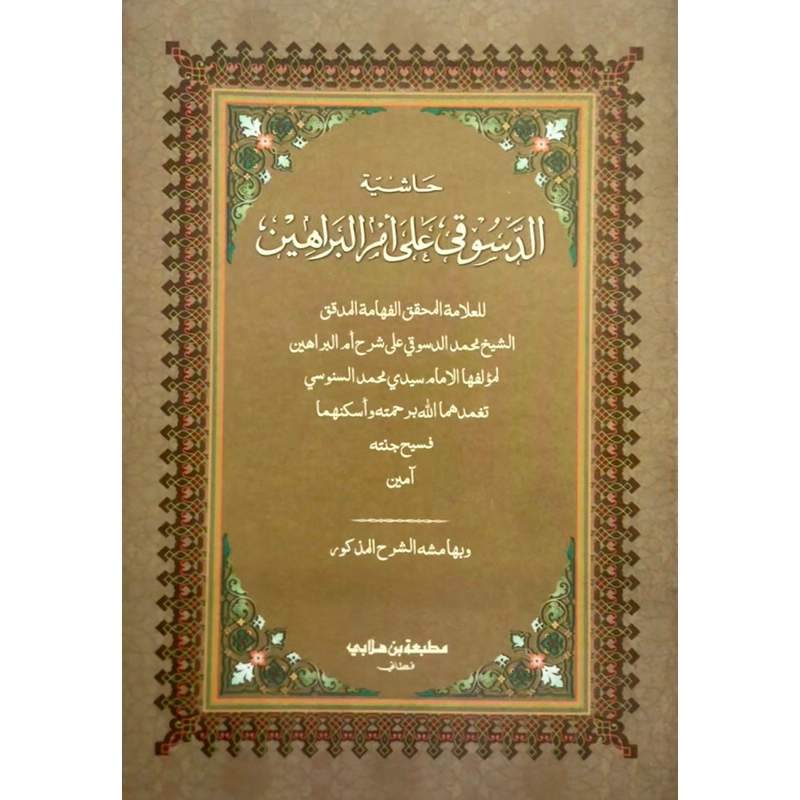 حاشية
الدسوقي على أم البراهين
للعلامة المحقق الفهامة المدقق
الشيخ محمد الدسوقي على شرح أم البراهين
لمؤلفها الامام سيدي محمد السنوسي
تغمدهما الله برحمته وأسكنهما
فسيح جنته
آمين
وبهامشه الشرح المذكور
مطبعة بن هلابي
فطاني